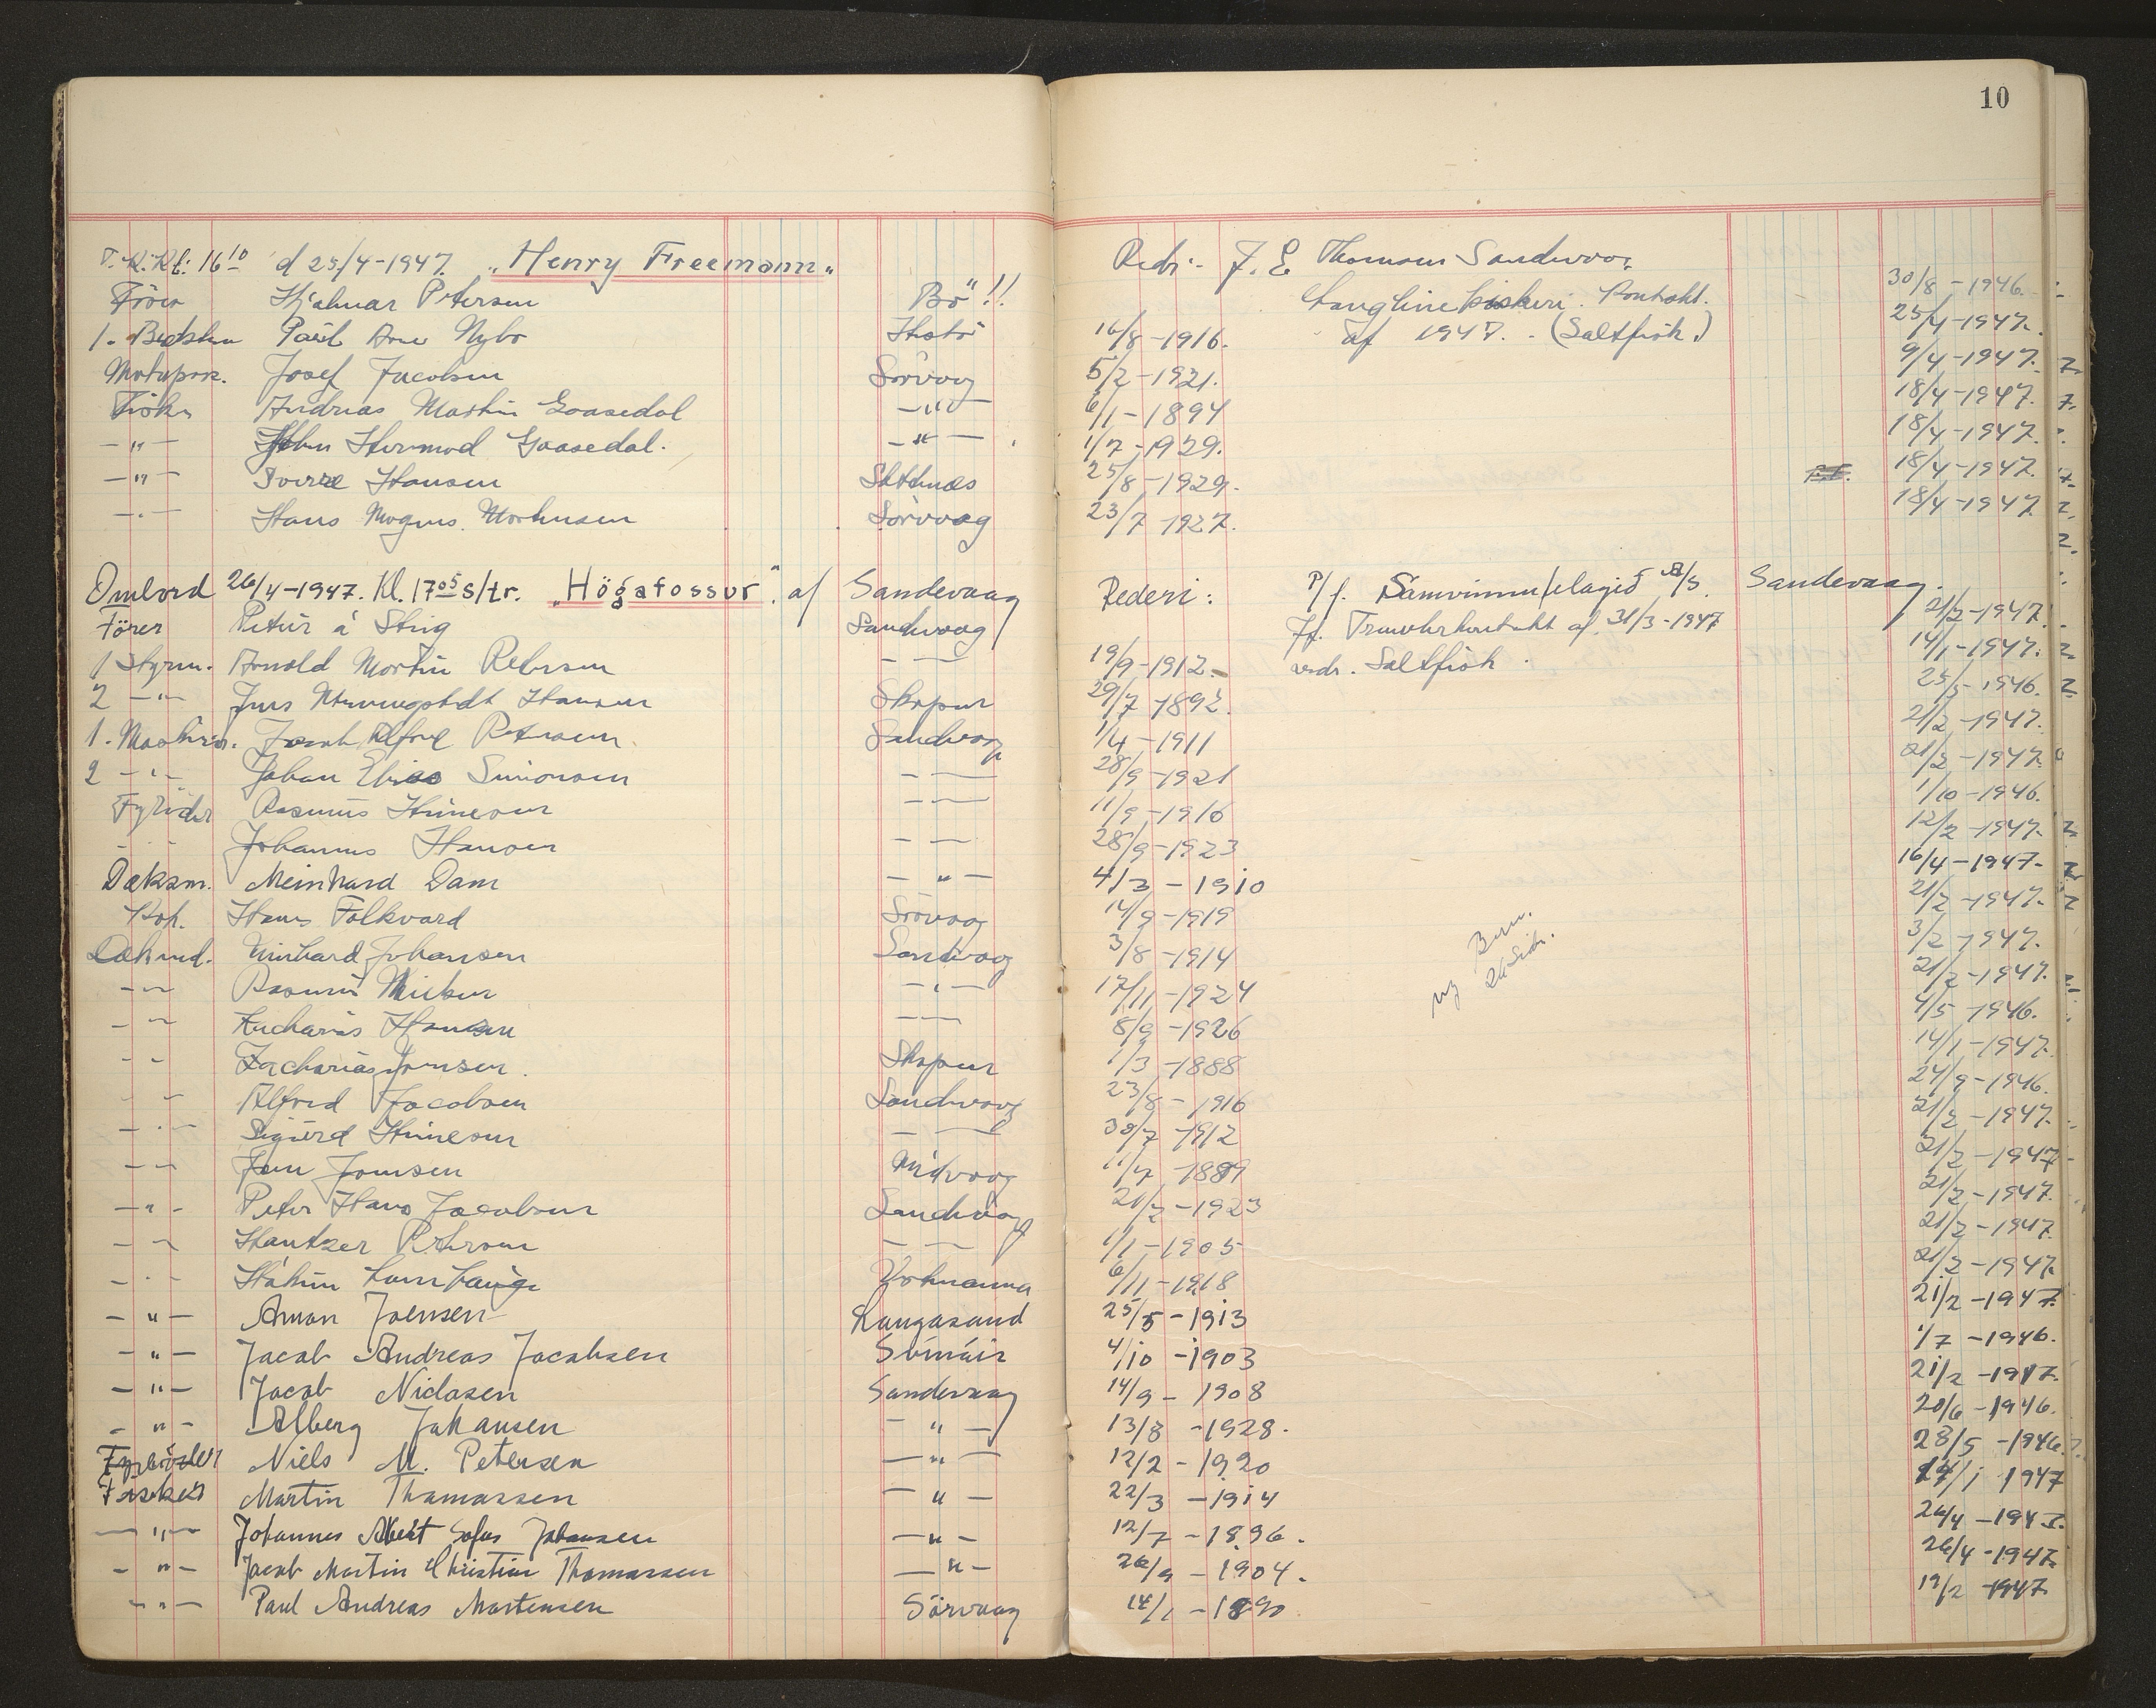 10
Kl. 16 10 d 25/4-1947. "Henry Freemann" Redr: J. E. Thomsen Sandevaag
Förer Hjalmar Petersen Bö"!! Langline fiskeri. Kontrakt. 30/8-1946.
1. Poul Arne Nybo 16/8-1916. af 1947. (Saltfisk.) 25/4-1947.
Motorpas. Josef Jacobsen Sörvaag 5/2-1921. 9/4-1947.
Fisker Andreas Martin Gaasedal -"- 6/1-1894 18/4-1947.
-"- John Hermod Gaasedal. -"- 1/7-1929. 18/4-1947.
-"- Sverre Hansen 25/8-1929. 18/4-1947.
-"- Hans Mogens Mortensen Sörvaag 23/7-1927. 18/4-1947
Ombord 26/4-1947. Kl. 17 05 s/tr. "Högafossur" af Sandevaag Rederi: P/f. Samvinnufelagið Sandevaag.
Förer Petur á Steig Sandevaag Jf. af 31/3-1947 21/2-1947.
1 Styrm. Arnold Martin Petersen - - 19/9-1912. vedr. Saltfisk. 14/1-1947.
2 -"- Jens Hansen Skopun 29/7-1892. 25/5-1946.
1. Maskin. Jacob Alfred Petersen Sandevaag 1/4-1911 21/2-1947.
2 -"- Johan Elias Simonsen - - 28/9-1921 21/2-1947.
Fyrböder Rasmus - - 11/9-1916 1/10-1946.
- - Johannes Hansen - - 28/9-1923 12/2-1947.
Dæksm. Meinhard Dam -"- 4/3-1910 16/4-1947.
Kok. Hans Folkvard Sörvaag 14/9-1919 21/2-1947.
Dæksmd. Meinhard Johansen Sandevaag 3/8-1914 3/2-1947.
- - Rasmus -"- 17/11-1924 21/2-1947.
- - Zacharias Hansen - - 8/9-1926 4/5-1946.
- - Zacharias Joensen. Skopun 1/3-1888 14/1-1947.
- - Alfred Jacobsen Sandevaag 23/8-1916 24/9-1946.
- - Sigurd - - 30/7-1912 21/2-1947.
- - Jens Joensen Midvaag 21/2-1947
-"- Peter Hans Jacobsen Sandevaag 21/2-1947.
- - Petersen - - 1/1-1905 21/2-1947.
- - Hákun 6/11-1918 21/2-1947.
-"- Joensen Langasand 25/5-1913 21/2-1947.
-"- Jacob Andreas Jacobsen Svínáir 4/10-1903 1/7-1946.
-"- Jacob Niclasen Sandevaag 14/9-1908 21/2-1947.
-"- Alberg Johansen -"- 13/8-1928. 20/6-1946.
Fyrböder Niels M. Petersen -"- 12/2-1920 28/5-1946.
Fisker Martin Thomassen -"- 22/3-1914 1947
-"- Johannes Albert Sofus Johansen -"- 12/7-1896. 26/4-1947.
-"- Jacob Martin Christian Thomassen -"- 26/9-1904. 26/4-1947.
-"- Paul Andreas Mortensen Sörvaag 14/1-1890 19/2-1947.